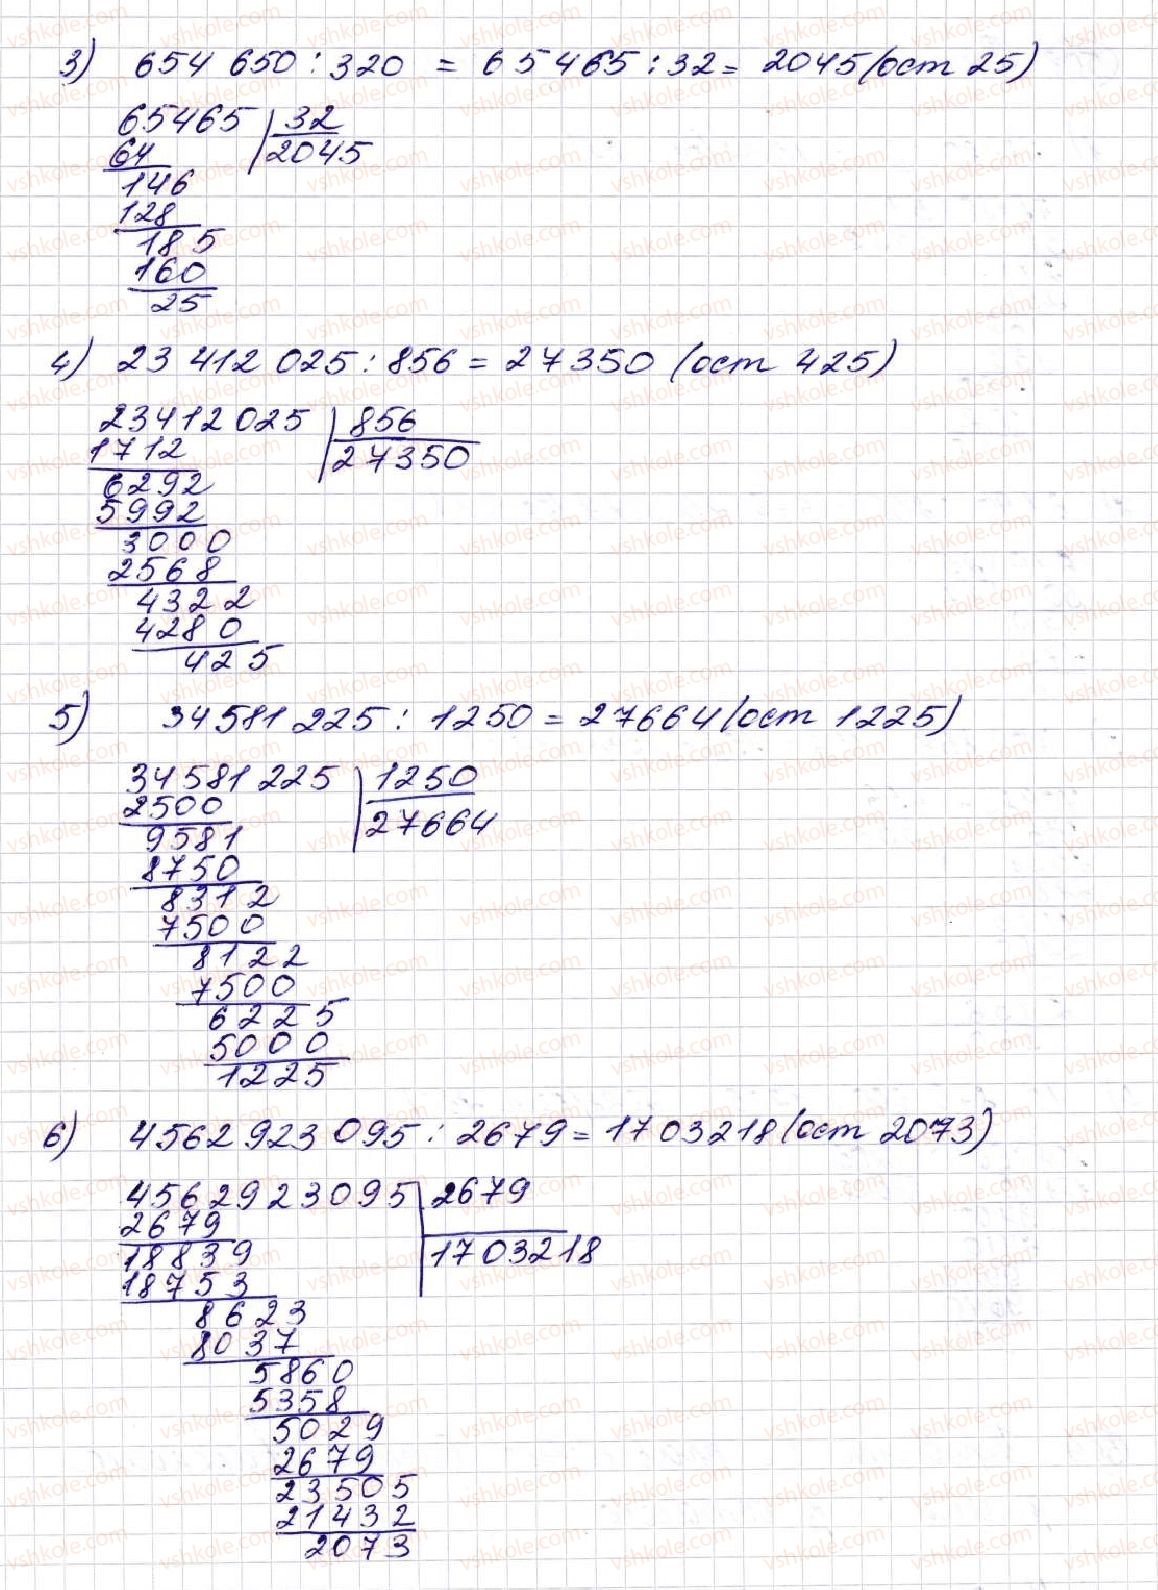 3) 654 650 : 320 = 65465 : 32 = 2045 (ост 25)
65465 | 32
64 | 2045
146
128
185
160
25
4) 23 412 025 : 856 = 27350 (ост 425)
23412 025 | 856
1712 | 27350
6292
5992
3000
2568
4322
4280
425
5) 34 581 225 : 1250 = 27664 (ост 1225)
34 581 225 | 1250
2500 | 27664
9581
8750
8312
7500
8122
7500
6225
5000
1225
6) 4562 923 095 : 2679 = 1703218 (ост 2073)
4562923095 | 2679
2679 | 1703218
18839
18753
8623
8037
5860
5358
5029
2679
23505
21432
2073
vshkole.com